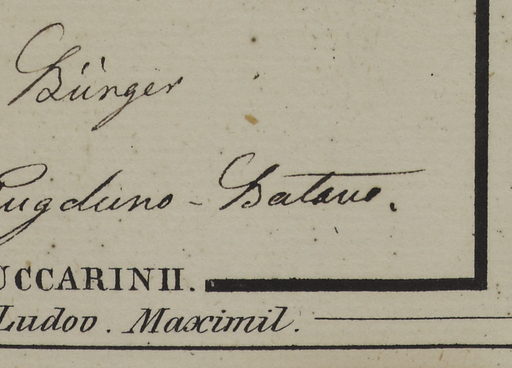 Bürger
Lugduno - Batavo.
UCCARINII.
Ludov. Maximil.